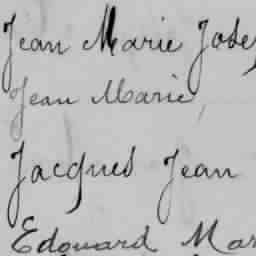 Jean Marie Jose
Jean Marie,
Jacques Jean
Edouard Mar